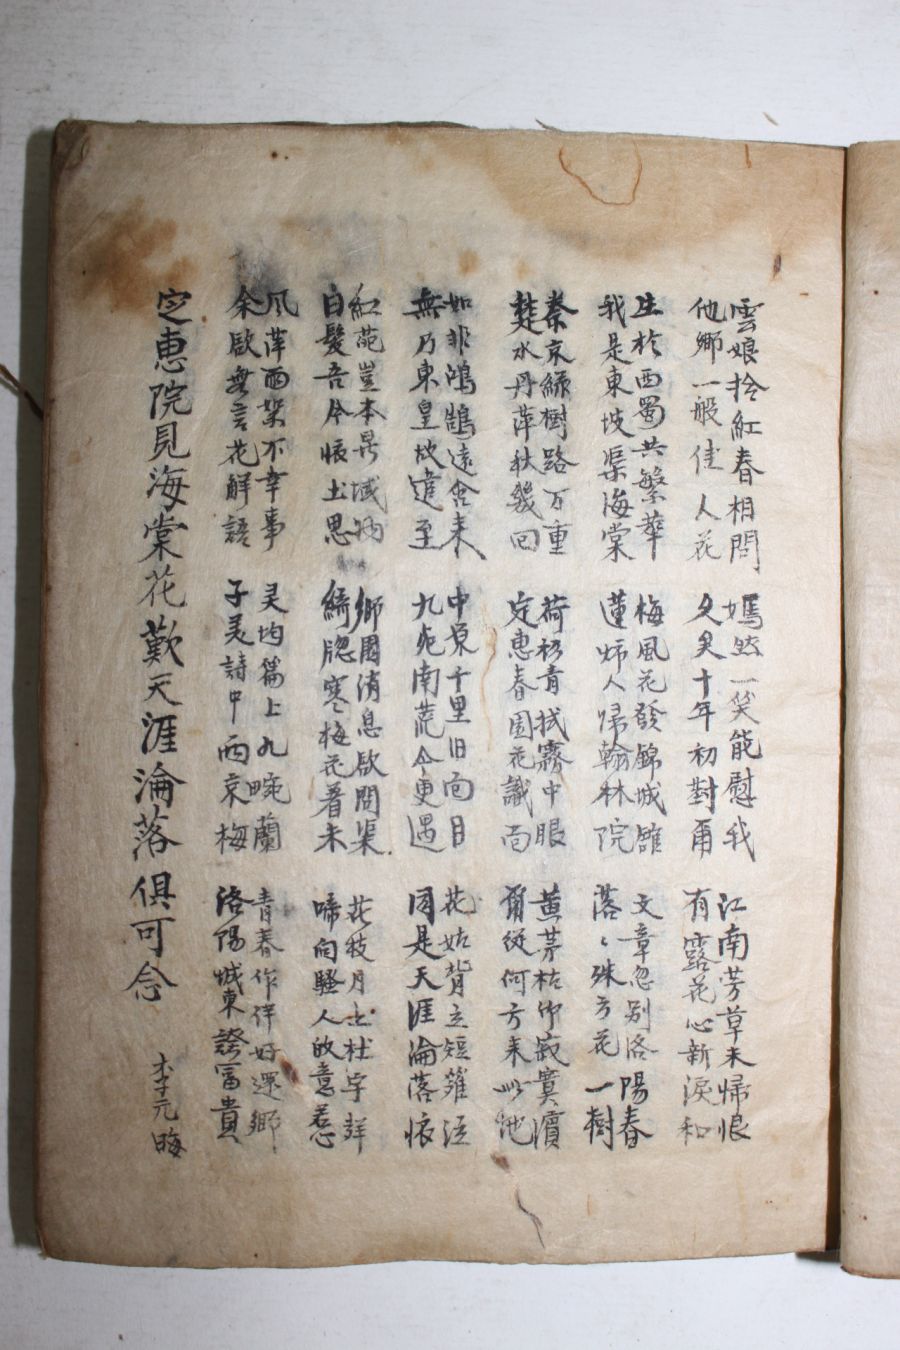 雲娘拾紅春相問
他鄉一般佳人花
嫣然一笑能慰我
久矣十年初對爾
江南芳草未歸恨
有露花心新淚和
生於西蜀共繁華
我是東坡渠海棠
梅風花發錦城
蓮人歸翰林院
文章忽別洛陽春
落〻殊方花一樹
秦京綠樹路万重
楚水丹萍秋幾回
荷杉青拭霧中眼
定惠春園花識面
黃茅枯竹寂寞濱
爾從何方来此地
如非鴻鵠遠含来
無乃東皇故遣至
中原千里旧面目
九死南荒今更遇
花姑背立短籬泣
同是天涯淪落懷
紅葩豈本是域物
白髮吾今懷土思
鄉國消息欲問渠
綺牕寒梅花着未
花枝月上杜宇群
啼向騷人故意惹
風萍雨絮不幸事
余欲無言花解語
灵均篇上九畹蘭
子美詩中兩京梅
青春作伴好還鄉
洛陽城東證富貴
定惠院見海棠花歎天涯淪落俱可念
李元晦